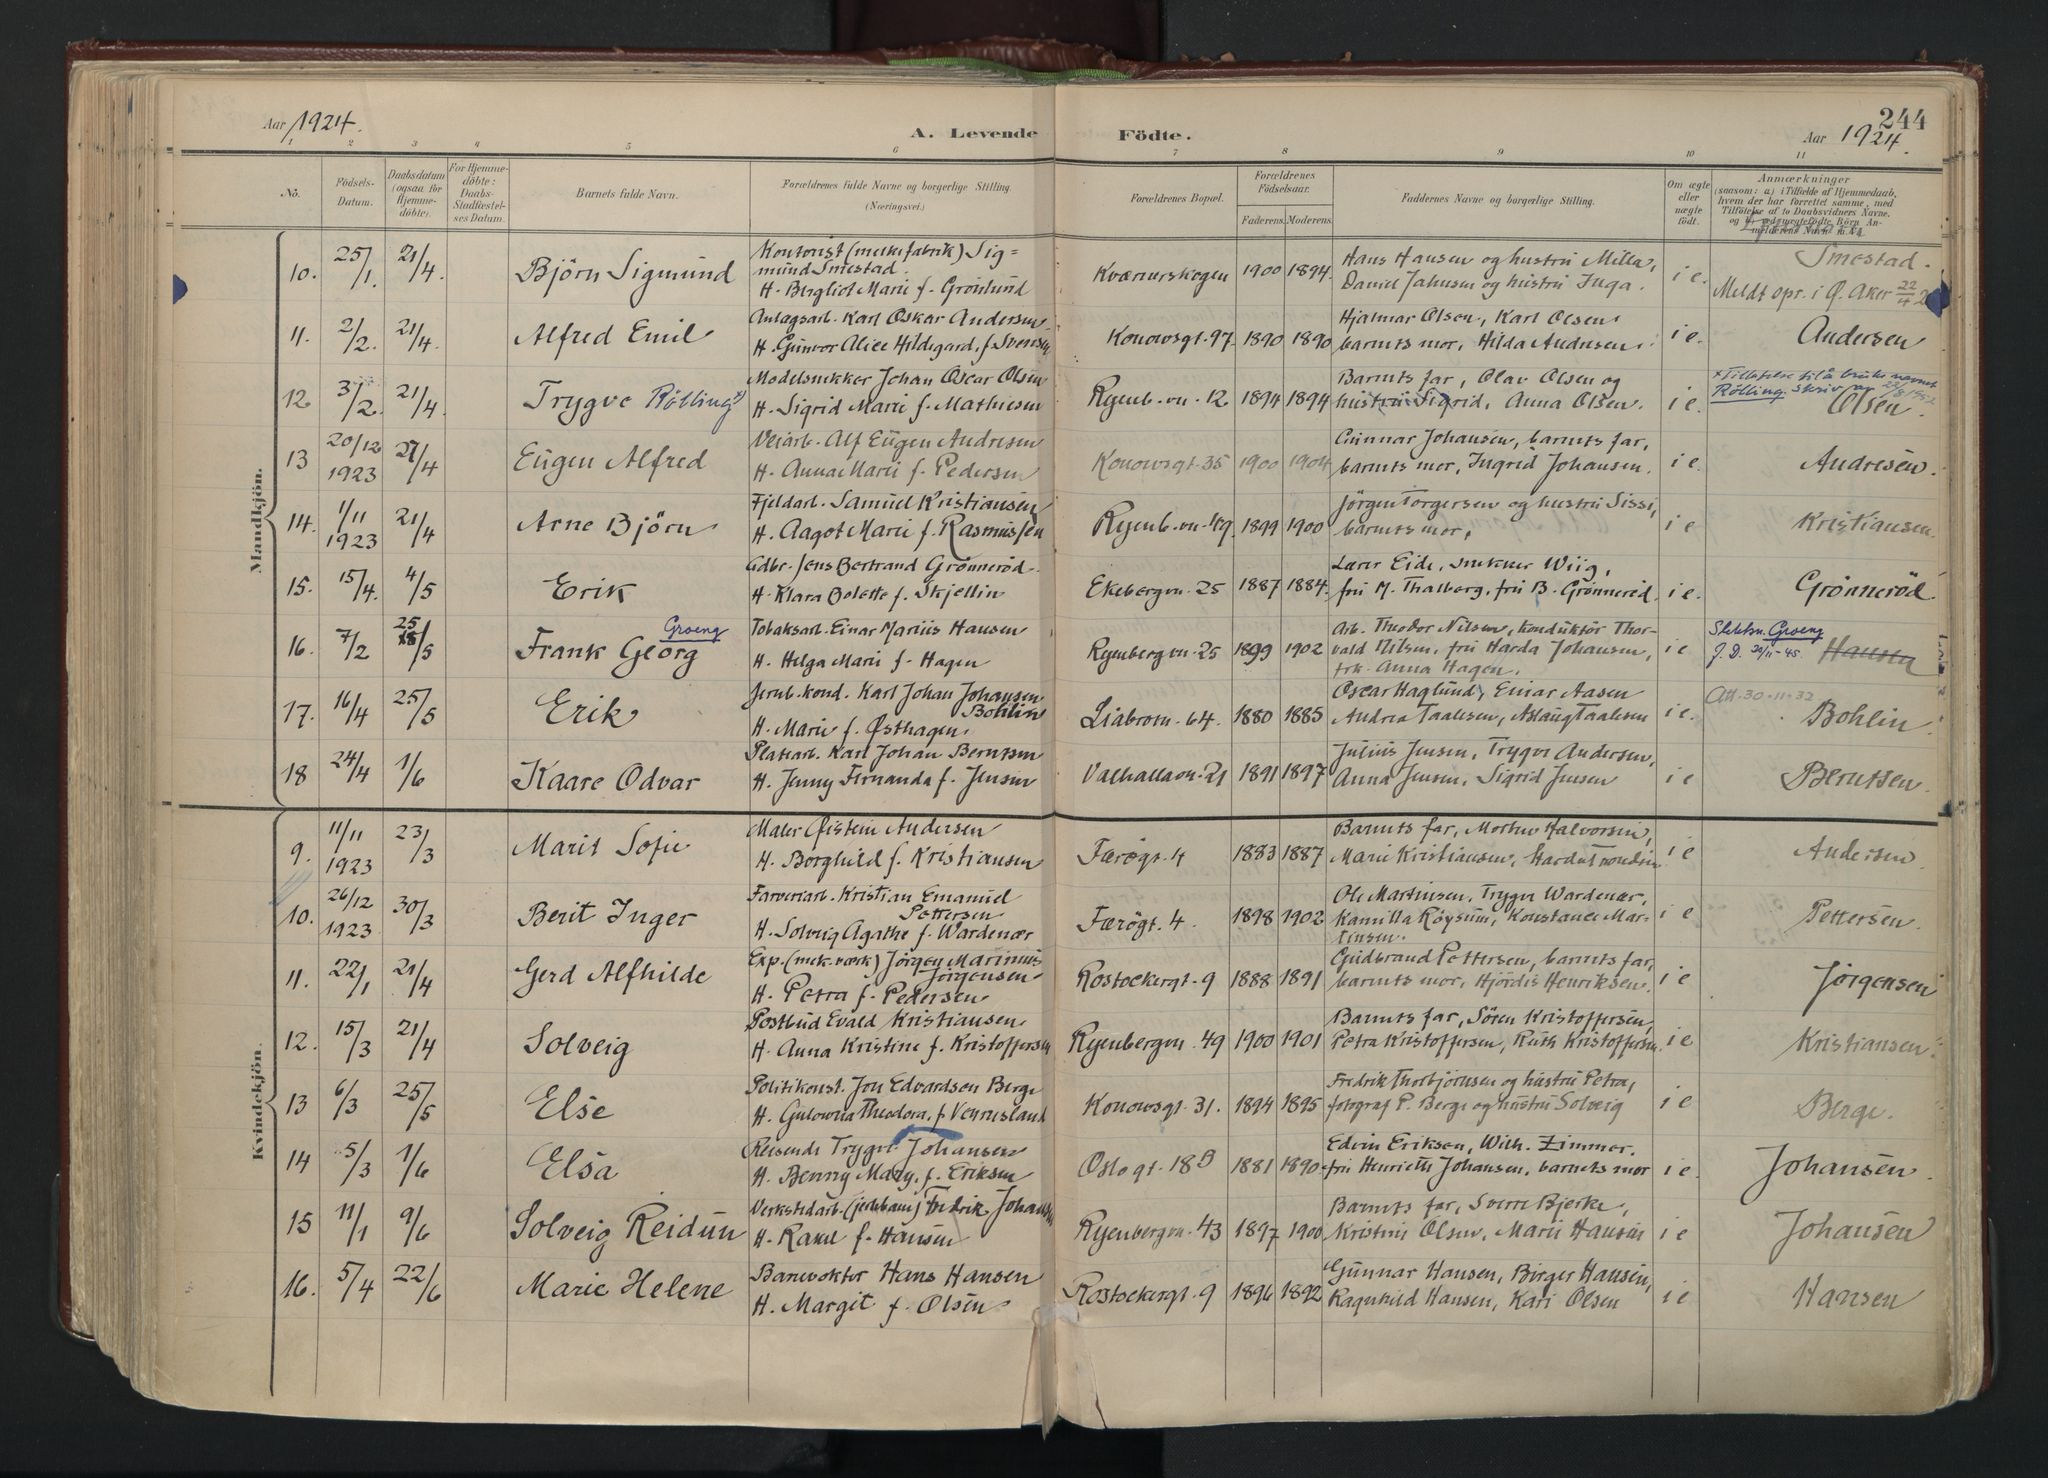 244
Aar 1924.
A. Levende Födte.
Aar 1924.
1 2 3 4 5 6 7 8 9 10 11
No. Födsels-Datum. Daabsdatum (ogsaa for Hjemmedöbte). For Hjemmedöbte: Daabs-Stadfæstelses Datum. Barnets fulde Navn. Forældrenes fulde Navne og borgerlige Stilling. (Næringsvei.) Forældrenes Bopæl. Forældrenes Födselsaar. Faderens. Moderens. Faddernes Navne og borgerlige Stilling. Om ægte eller uægte födt. Anmærkninger
(saasom: a) i Tilfælde af Hjemmedaab,
hvem der har forrettet samme, med
Tilföielse af to Daabsvidners Navne,
Mandkjön.
10. 25/1. 21/4. Björn Sigmund
Kontorist (melkefabrik) Sig=
mund Smestad.
H. Bergliot Marie f. Grönlund
Kværnerskogen 1900 1894.
Hans Hansen og hustru Milla,
Daniel Jahnsen og hustru Inga.
i e.
Smestad.
Meldt opr. i Ø. Aker 22/4 2
11. 2/2. 21/4. Alfred Emil
Anlagsarb. Karl Oskar Andersen
H. Gunvor Alice Hildegard, f. Svensen
Konowsgt. 97. 1890 1890
Hjalmar Olsen, Karl Olsen
barnets mor, Hilda Andersen.
i e.
Andersen
12 3/2. 21/4. Trygve Rölling x)
Modelsnekker Johan Oscar Olsen
H. Sigrid Marie f. Mathiesen
Ryenb.vn. 12 1894 1894
Barnets far, Olav Olsen og
hustru Sigrid, Anna Olsen.
i e.
x Tillatelse til å bruke navnet
Rölling. skriv av
Olsen.
13 20/12 1923 21/4 Eugen Alfred
Veiarb. Alf Eugen Andresen
H. Anna Marie f. Pedersen
Konowsgt. 35 1900 1904
Gunnar Johansen, barnets far,
barnets mor, Ingrid Johansen.
i e.
Andresen.
14. 1/11 1923 21/4 Arne Björn
Fjeldarb. Samuel Kristiansen
H. Aagot Marie f. Rasmussen
Ryenb.vn. 49. 1899 1900
Jörgen Torgersen og hustru Sissi,
barnets mor,
i e
Kristiansen.
15. 15/4. 4/5 Erik
Gdbr. Jens Bertrand Grönneröd.
H. Klara Bolette f. Skjellin
Ekebergvn. 25 1887 1884.
Lærer Eide, snekker Wiig,
fru M. Thalberg, fru B. Grönneröd.
i e.
Grönneröd.
16. 7/2 25/5 Frank Georg Groeng
Tobaksarb. Einar Marius Hansen
H. Helga Marie f. Hagen
Ryenbergvn. 25 1899 1902
Arb. Theodor Nilsen, konduktör Thor-
vald Nilsen, fru Harda Johansen,
frk. Anna Hagen.
i e
Slektsn. Groeng
J. D. 20/11-45. Hansen
17. 16/4 25/5 Erik
Jernb. kond. Karl Johan Johansen
Bohlin
H. Marie f. Østhagen.
Liabrovn. 64. 1880 1885
Oscar Haglund, Einar Aasen
Andrea Taalesen, Aslaug Taalesen
i e.
Att. 30-11-32
Bohlin
18 24/4 1/6 Kaare Odvar
Platearb. Karl Johan Berntsen
H. Jenny Fernanda f. Jensen
Valhallavn. 21 1891 1897
Julius Jensen, Trygve Andersen,
Anna Jensen, Sigrid Jensen
i e
Berntsen.
Kvindekjön.
9. 11/11 1923 23/3 Marit Sofie
Maler Øistein Andersen
H. Borghild f. Kristiansen
Færögt. 4 1883 1887
Barnets far, Morten Halvorsen,
Marie Kristiansen, Harda Trondsen
i e
Andersen.
10. 26/12 1923. 30/3 Berit Inger
Farveriarb. Kristian Emanuel
Pettersen
H. Solveig Agathe f. Wardenær
Færögt. 4. 1898 1902
Ole Martinsen, Trygve Wardenær,
Kamilla Röysum, Konstance Mar-
tinsen.
i e
Pettersen.
11. 22/1 21/4 Gerd Alfhilde
Exp. (mek. værk) Jörgen Marinus
Jörgensen
H. Petra f. Pedersen
Rostockergt. 9 1888 1891
Gudbrand Pettersen, barnets far,
barnets mor, Hjördis Henriksen.
i e
Jörgensen
12. 15/3 21/4 Solveig
Postbud Evald Kristiansen
H. Anna Kristine f. Kristoffersen
Ryenbergvn. 49 1900 1901
Barnets far, Sören Kristoffersen,
Petra Kristoffersen, Ruth Kristoffersen.
i e
Kristiansen.
13 6/3 25/5 Else
Politikonst. Jon Edvardsen Berge
H. Gulowna Theodora, f. Vennesland
Konowsgt. 31. 1894 1895
Fredrik Thorbjörnsen og hustru Petra,
fotograf P. Berge og hustru Solveig
i e
Berge.
14 5/3 1/6 Elsa
Reisende Trygve Johansen
H. Benny Mary, f. Eriksen
Oslogt. 18 1881 1890
Edvin Eriksen, Wilh. Zimmer.
fru Henriette Johansen, barnets mor
i e.
Johansen.
15 11/1 9/6 Solveig Reidun
Verkstedarb. (jernbane) Fredrik Johansen
H. Rakel f. Hansen
Ryenbergvn. 43 1897 1900
Barnets far, Sverre Bjerke,
Kristine Olsen, Marie Hansen
i e
Johansen
16. 5/4 22/6 Marie Helene
Banevokter Hans Hansen
H. Margit f. Olsen
Rostockergt. 9 1896 1892
Gunnar Hansen, Birger Hansen,
Ragnhild Hansen, Kari Olsen
i e
Hansen